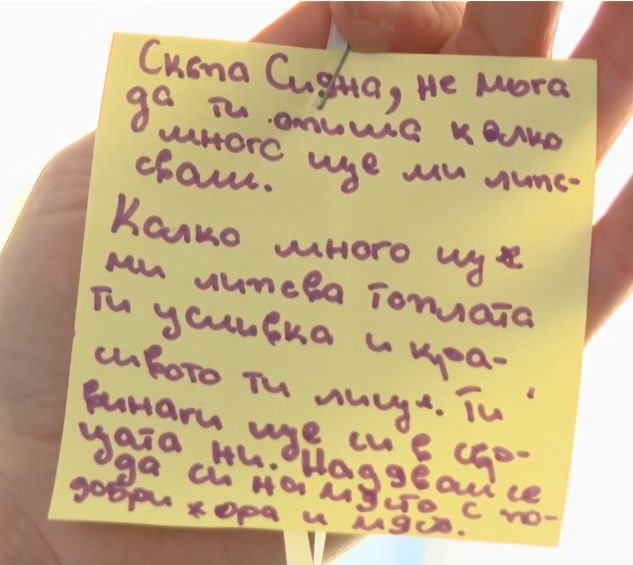 Скъпа Сияна, не мога
да ти опиша колко
много ще ми липс-
ваш.
Колко много ще
ми липсва топлата
ти усмивка и кра-
сивото ти лице. Ти
винаги ще си в сър-
цата ни. Надявам се
да си на място с по-
добри хора и място.